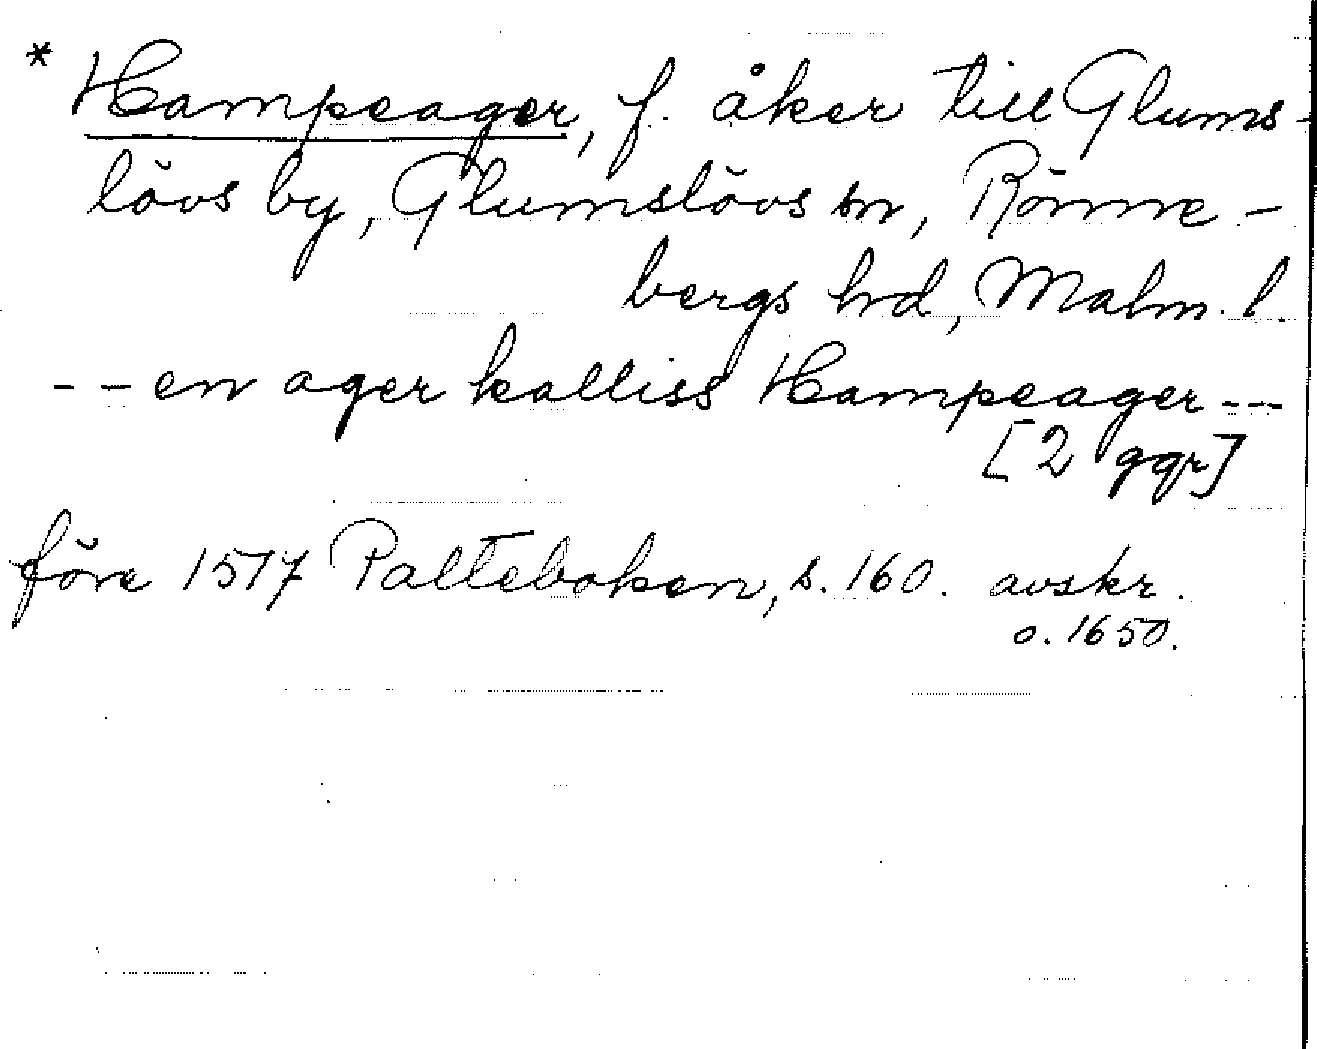 * Hampeager, f. åker till Glums-
lövs by, Glumslövs sn, Rönne-
bergs hd, Malm. l.
-- en ager kalliss Hampeager ---
[2 ggr]
före 1517 Palteboken, s. 160. avskr.
o. 1650.